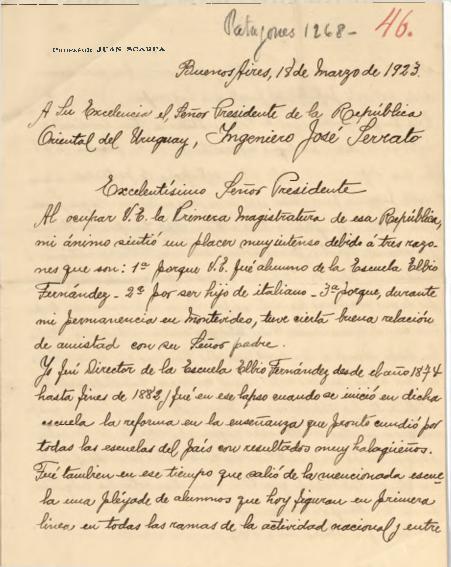 Patagones 1268- 46.
Profesor JUAN SCARPA
Buenos Aires, 18 de Marzo de 1923.
A Su Excelencia el Señor Presidente de la República
Oriental del Uruguay, Ingeniero José Serrato
Excelentísimo Señor Presidente
Al ocupar V.E. la Primera Magistratura de esa República,
mi ánimo sintió un placer muy intenso debido á tres razo-
nes que son: 1ª porque V.E. fué alumno de la Escuela Elbio
Fernández - 2ª por ser hijo de italiano - 3ª porque, durante
mi permanencia en Montevideo, tuve cierta buena relación
de amistad con su Señor padre.
Yo fuí Director de la Escuela Elbio Fernández desde el año 1874
hasta fines de 1882, fué en ese lapso cuando se inició en dicha
escuela la reforma en la enseñanza que pronto cundió por
todas las escuelas del país con resultados muy halagüeños.
Fué tambien en ese tiempo que salió de la mencionada escue-
la una pléyade de alumnos que hoy figuran en primera
línea en todas las ramas de la actividad nacional y entre